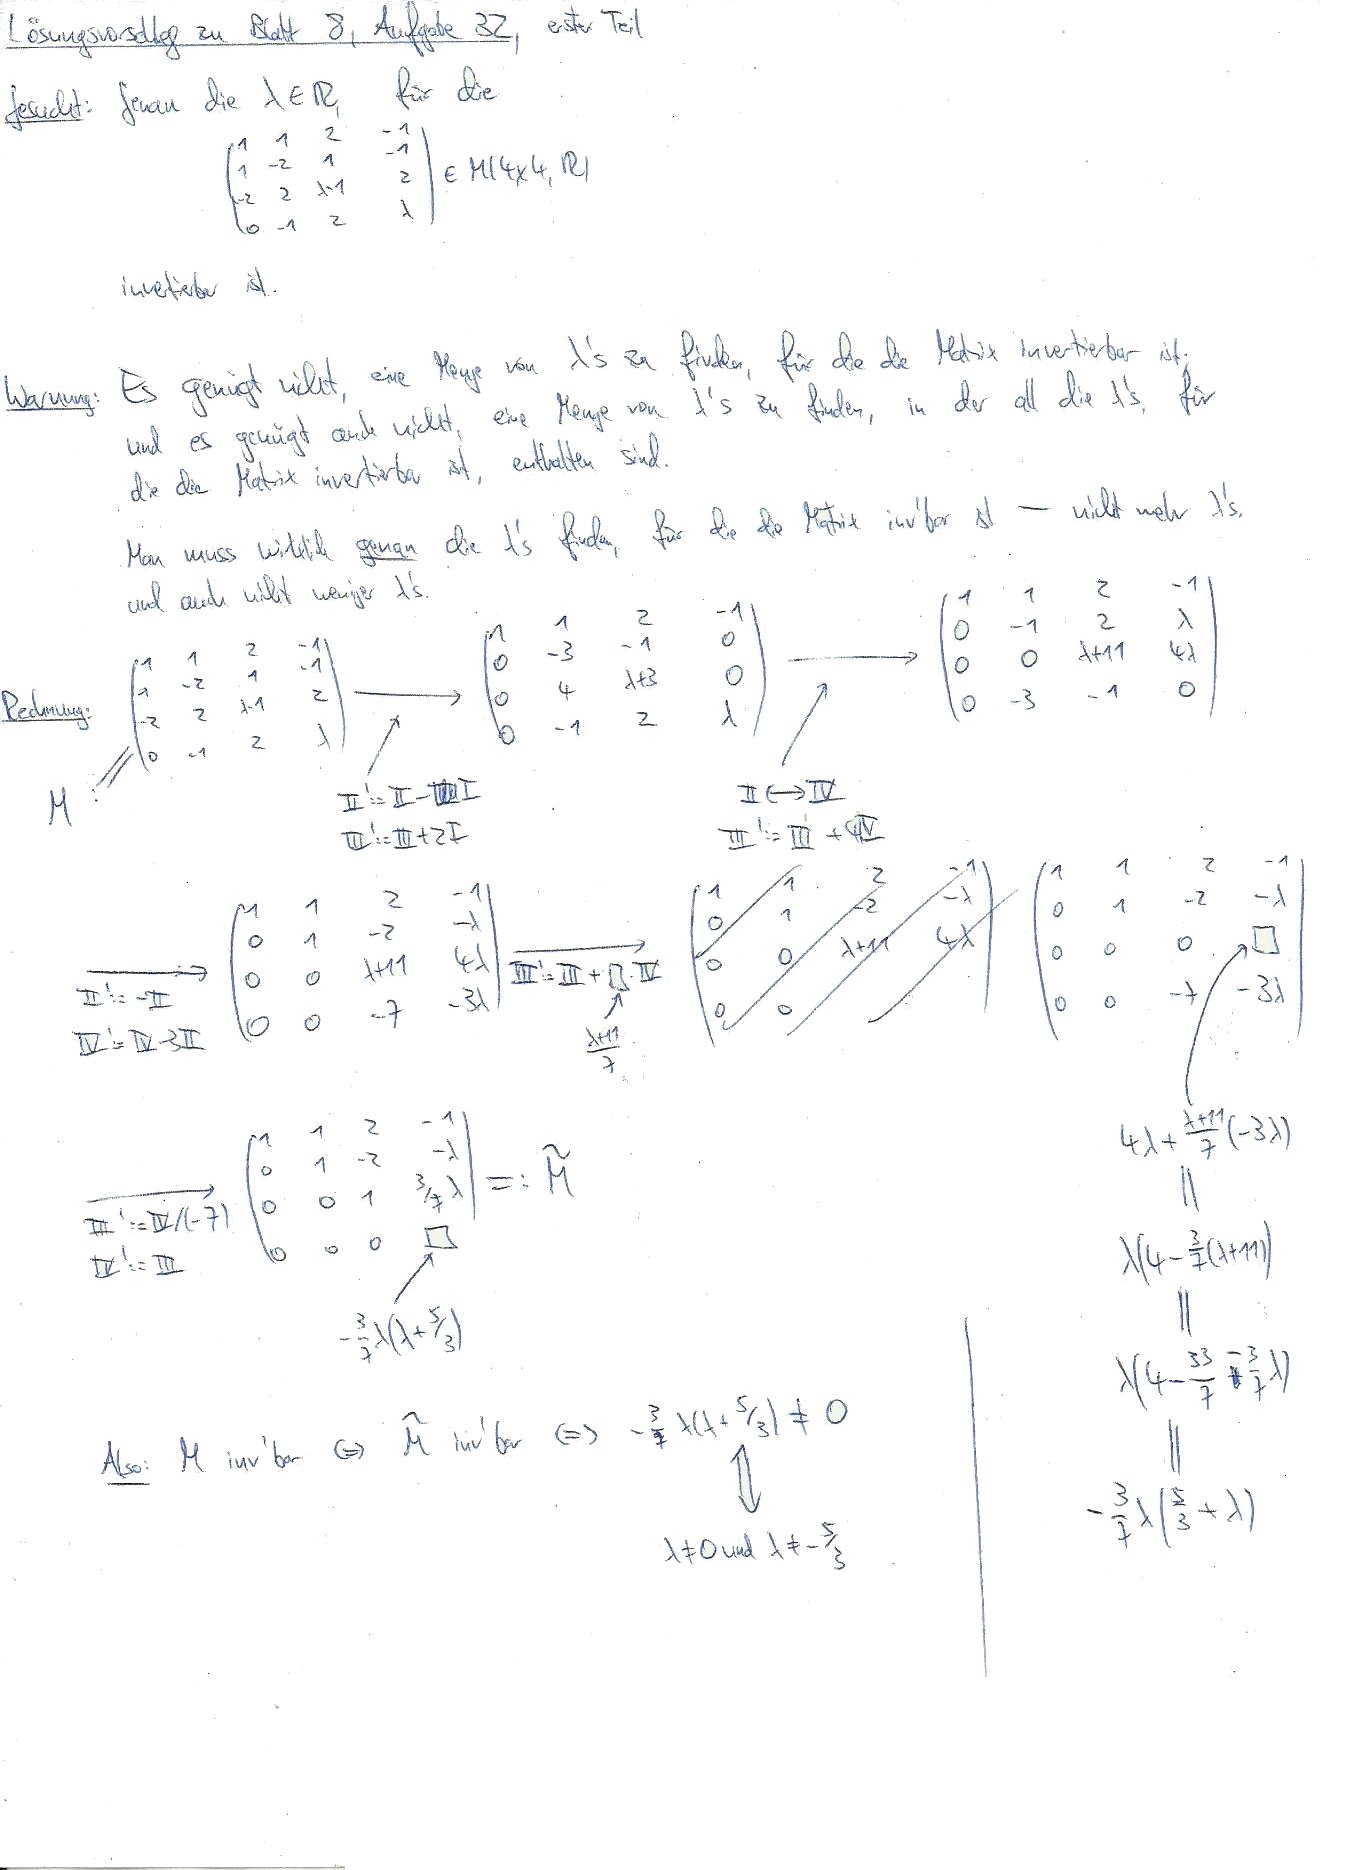 Lösungsvorschlag zu Blatt 8, Aufgabe 32, erster Teil
Gesucht: Genau die λ ∈ ℝ, für die
1 1 2 -1
1 -2 1 -1
-2 2 λ-1 2
0 -1 2 λ
∈ M(4x4, ℝ)
invertierbar ist.
Warnung: Es genügt nicht, eine Menge von λ's zu finden, für die die Matrix invertierbar ist;
und es genügt auch nicht, eine Menge von λ's zu finden, in der all die λ's, für
die die Matrix invertierbar ist, enthalten sind.
Man muss wirklich genau die λ's finden, für die die Matrix inv'bar ist — nicht mehr λ's,
und auch nicht weniger λ's.
Rechnung:
1 1 2 -1
1 -2 1 -1
-2 2 λ-1 2
0 -1 2 λ
M :=
→
II' := II - I
III' := III + 2I
1 1 2 -1
0 -3 -1 0
0 4 λ+3 0
0 -1 2 λ
→
II ↔ IV
III' := III + 4IV
1 1 2 -1
0 -1 2 λ
0 0 λ+11 4λ
0 -3 -1 0
→
II' := -II
IV' := IV - 3II
1 1 2 -1
0 1 -2 -λ
0 0 λ+11 4λ
0 0 -7 -3λ
→
III' := III + □·IV
λ+11/7
1 1 2 -1
0 1 -2 -λ
0 0 λ+11 4λ
0 0
1 1 2 -1
0 1 -2 -λ
0 0 0 □
0 0 -7 -3λ
4λ + λ+11/7 (-3λ)
||
λ(4 - 3/7(λ+11))
||
λ(4 - 33/7 - 3/7 λ)
||
- 3/7 λ(5/3 + λ)
→
III' := IV/(-7)
IV' := III
1 1 2 -1
0 1 -2 -λ
0 0 1 3/7 λ
0 0 0 □
=: M̃
- 3/7 λ(λ + 5/3)
Also: M inv'bar ⇔ M̃ inv'bar ⇔ - 3/7 λ(λ + 5/3) ≠ 0
⇕
λ ≠ 0 und λ ≠ - 5/3